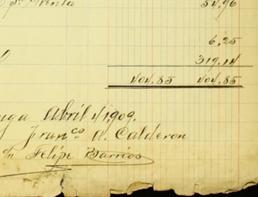 Venta 54,96
6,25
319,14
404.85 404.85
Abril 4/1909.
Franco A. Calderon
Felipe Barrios